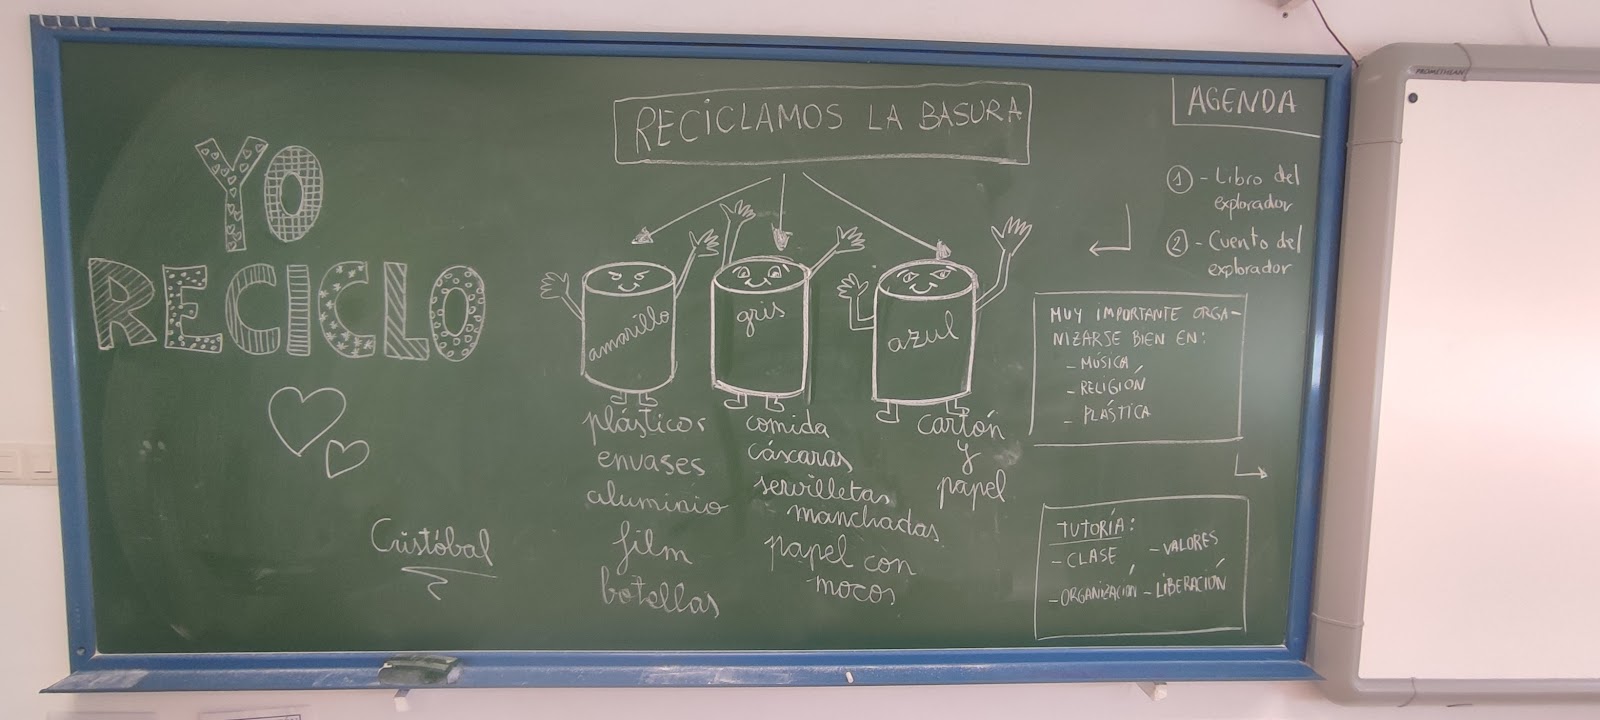 YO
RECICLO
Cristóbal
RECICLAMOS LA BASURA
amarillo
plásticos
envases
aluminio
film
botellas
gris
comida
cáscaras
servilletas
manchadas
papel con
mocos
azul
cartón
y
papel
AGENDA
1 - Libro del
explorador
2 - Cuento del
explorador
MUY IMPORTANTE ORGA-
NIZARSE BIEN EN:
- MÚSICA
- RELIGIÓN
- PLÁSTICA
TUTORÍA:
- CLASE - VALORES
- ORGANIZACIÓN - LIBERACIÓN
PROMETHEAN